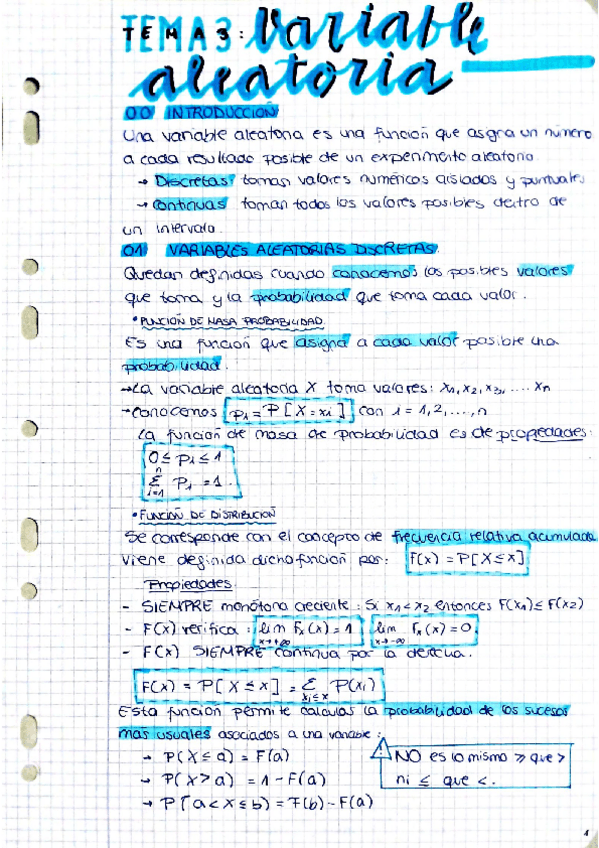 TEMA3: Variable
aleatoria
00 INTRODUCCIÓN
Una variable aleatoria es una función que asigna un número
a cada resultado posible de un experimento aleatorio.
→ Discretas: toman valores numéricos aislados y puntuales
→ continuas toman todos los valores posibles dentro de
un intervalo.
01 VARIABLES ALEATORIAS DISCRETAS.
Quedan definidas cuando conocemos los posibles valores
que toma y la probabilidad que toma cada valor.
• FUNCIÓN DE MASA PROBABILIDAD
Es una función que asigna a cada valor posible una
probabilidad.
→ La variable aleatoria X toma valores: x₁, x₂, x₃, .... xn
→ conocemos pᵢ = P [X = xi] con i = 1, 2, ..., n
La función de masa de probabilidad es de propiedades:
0 ≤ pᵢ ≤ 1
n Σ i=1 Pᵢ = 1.
• FUNCIÓN DE DISTRIBUCIÓN
Se corresponde con el concepto de frecuencia relativa acumulada.
Viene definida dicha función por: F(x) = P[X ≤ x]
Propiedades.
- SIEMPRE monótona creciente: Si x₁ < x₂ entonces F(x₁) ≤ F(x₂)
- F(x) verifica: lim x→+∞ Fx(x) = 1 lim x→-∞ Fx(x) = 0.
- F(x) SIEMPRE continua por la derecha.
F(x) = P[X ≤ x] = Σ xi≤x P(xi)
Esta función permite calcular la probabilidad de los sucesos
más usuales asociados a una variable:
→ P(X ≤ a) = F(a)
→ P(X > a) = 1 - F(a)
→ P[a < X ≤ b) = F(b) - F(a)
⚠ NO es lo mismo ≥ que >
ni ≤ que <.
1